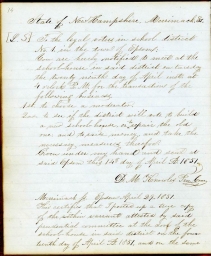 State of New Hampshire, Merrimack, SS.
To the legal voters in school district
No 1 in the town of Epsom.
You are hereby notified to meet at the
school house in said district on
the twenty ninth day of April next at
o'clock P.M. for the transaction of the
following business,
1st to choose a moderator.
2nd to see if the district will vote to build
a new school house, or repair the old
one, and to raise money and take the
necessary measures therefor.
Given under my hand and seal at
said Epsom this 14th day of April A.D. 1851.
D. M.
Merrimack SS. Epsom April 29, 1851.
I certify that I posted up a true copy
of the within warrant attested by said
prudential committee at the door of the
school house in said district on the four
teenth day of April A.D. 1851, and on the same